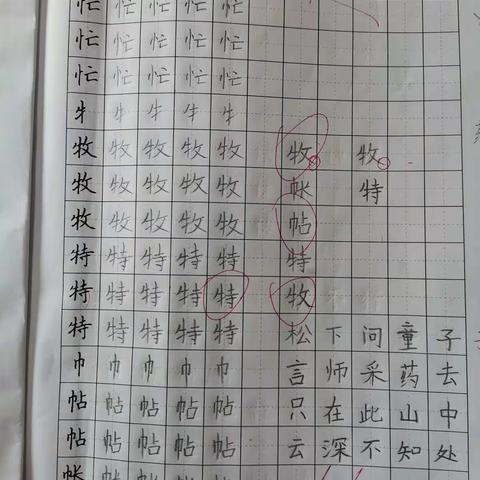 忙 忙 忙 忙 忙
忙 忙 忙 忙 忙
忙 忙 忙 忙 忙
牜 牜 牜 牜 牜
牧 牧 牧 牧 牧 牧 牧
牧 牧 牧 牧 牧 帐 特
牧 牧 牧 牧 牧 帖
特 特 特 特 特 特
特 特 特 特 特 牧
特 特 特 特 特 松 下 问 童 子
巾 巾 巾 巾 巾 言 师 采 药 去
帖 帖 帖 帖 帖 只 在 此 山 中
帖 帖 帖 帖 帖 云 深 不 知 处
帐 帐 帐 帐 帐